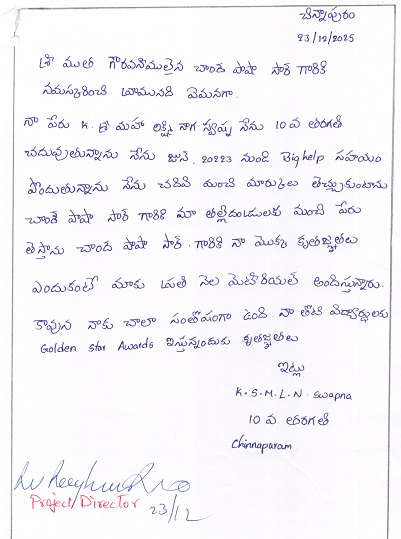 చిన్నాపురం
23/12/2025
శ్రీ ముత గౌరవనీయులైన చాంద పాషా సార్ గారికి
నమస్కరించి వ్రాయునది ఏమనగా.
నా పేరు K. శ్రీ మహా లక్ష్మి నాగ స్వప్న నేను 10 వ తరగతి
చదువుతున్నాను నేను జున్, 20223 నుండి Bighelp సహాయం
పొందుతున్నాను నేను చదివి మంచి మార్కులు తెచ్చుకుంటాను
చాంద్ పాషా సార్ గారికి మా తల్లిదండ్రులకు మంచి పేరు
తెస్తాను చాంద పాషా సార్. గారికి నా యొక్క కృతజ్ఞతలు
ఎందుకంటే మాకు ప్రతి నెల మెటీరియల్ అందిస్తున్నారు.
కావున నాకు చాలా సంతోషంగా ఉంది. నా తోటి విద్యార్థులకు
Golden Star Awards ఇస్తున్నందుకు కృతజ్ఞతలు
ఇట్లు
K.S.M.L.N. Swapna
10 వ తరగతి
Chinnapuram.
Project Director
23/12